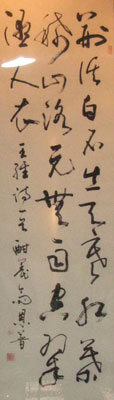 荊溪白石出天寒紅葉
稀山路元無雨空翠
溼人衣 王維詩一首